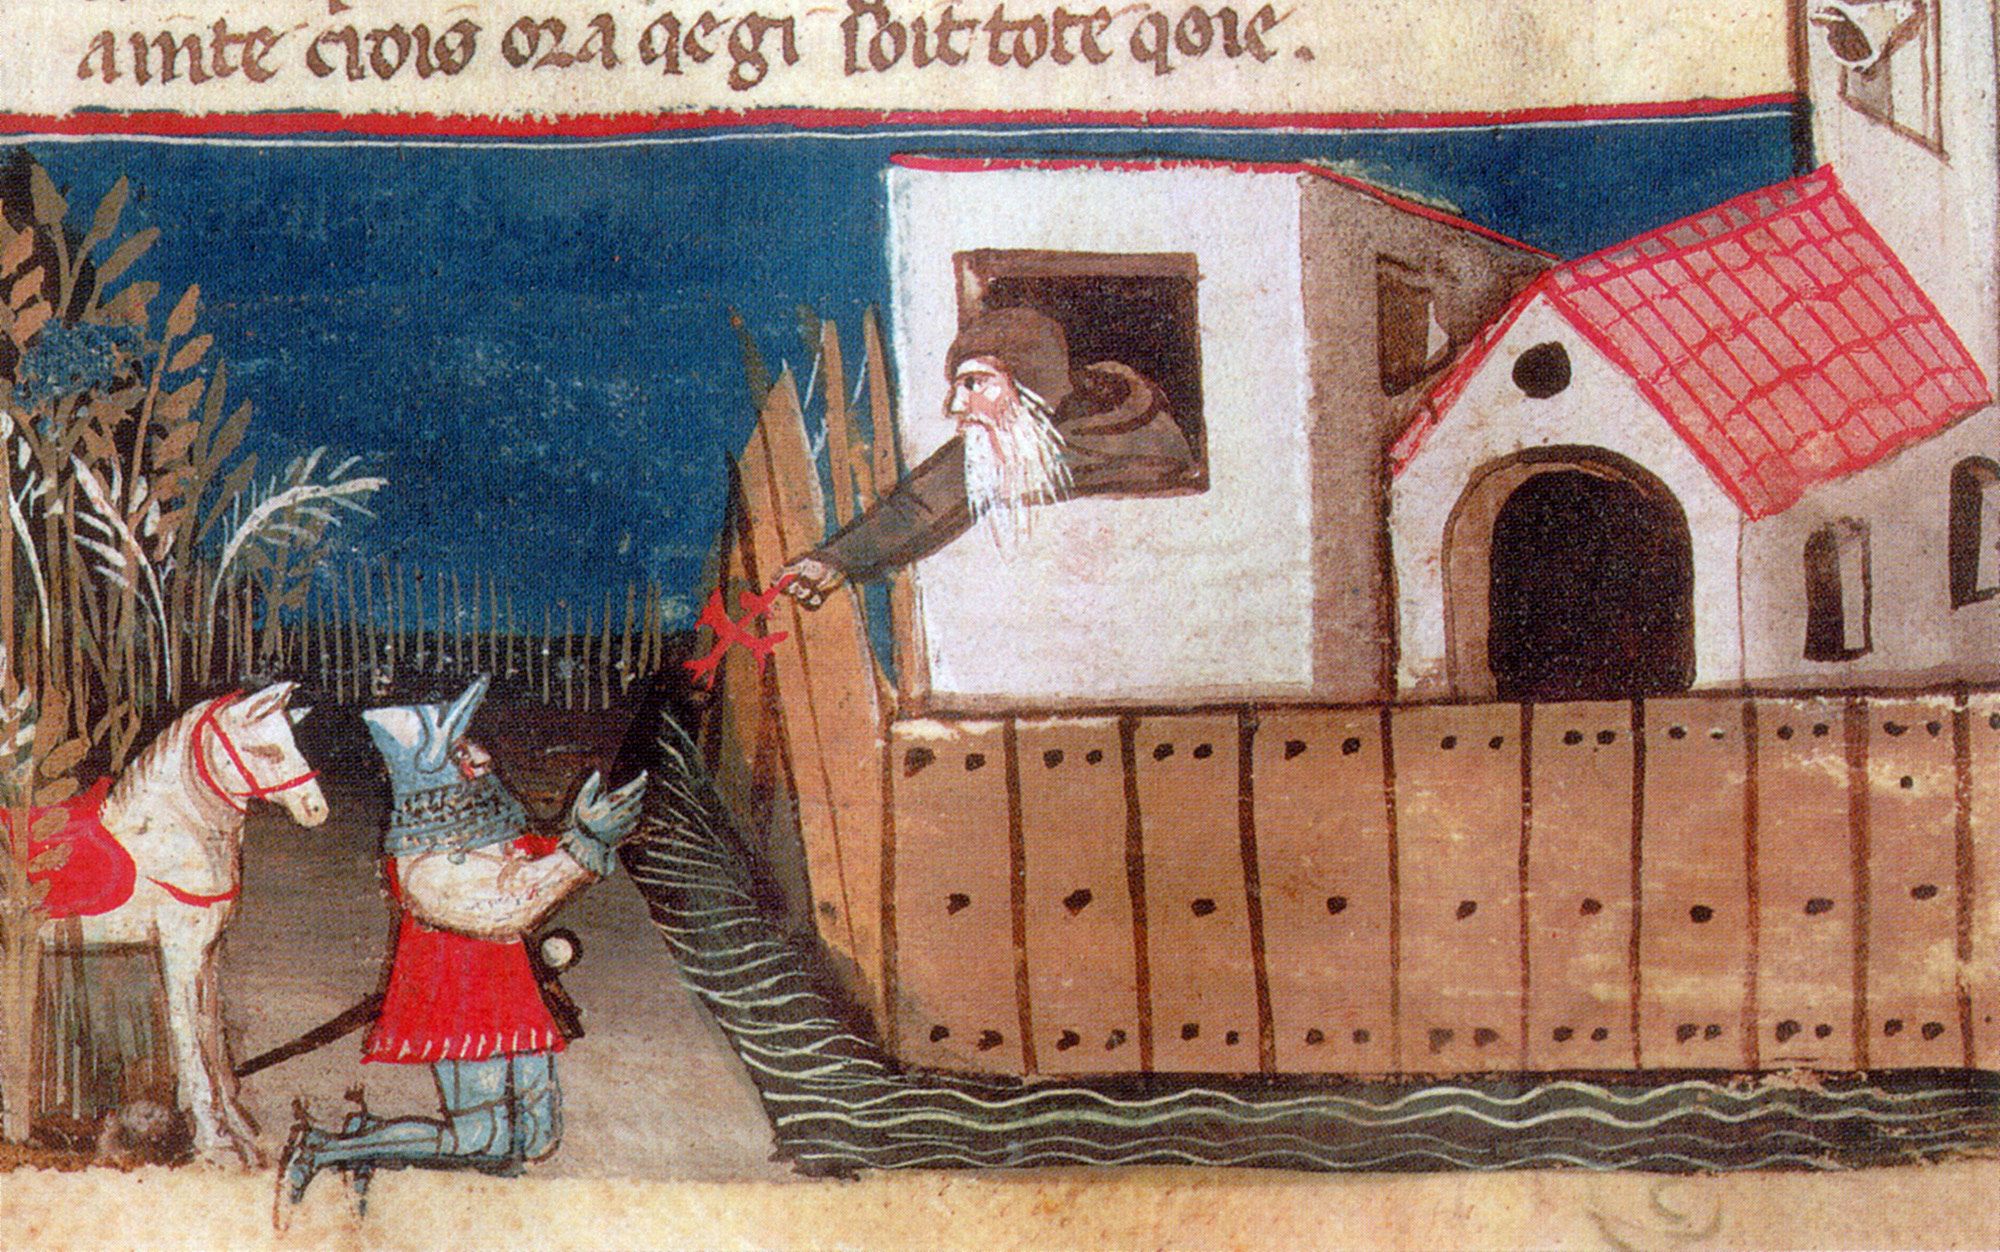 ainte crois ora qe gi soit tote qoie.